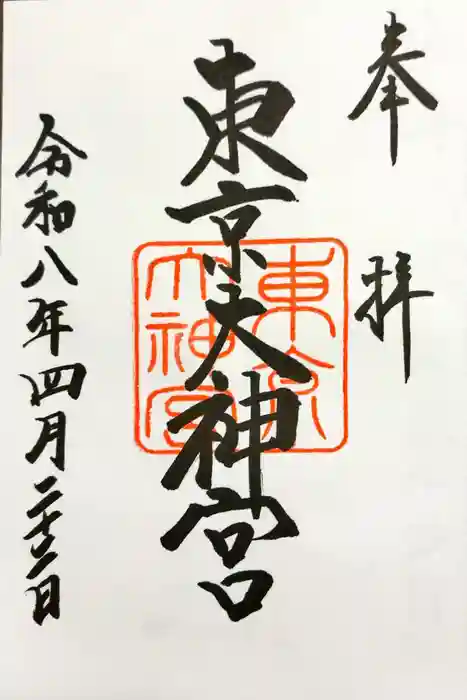 奉拝
東京大神宮
東京
大神宮
令和八年四月二十二日